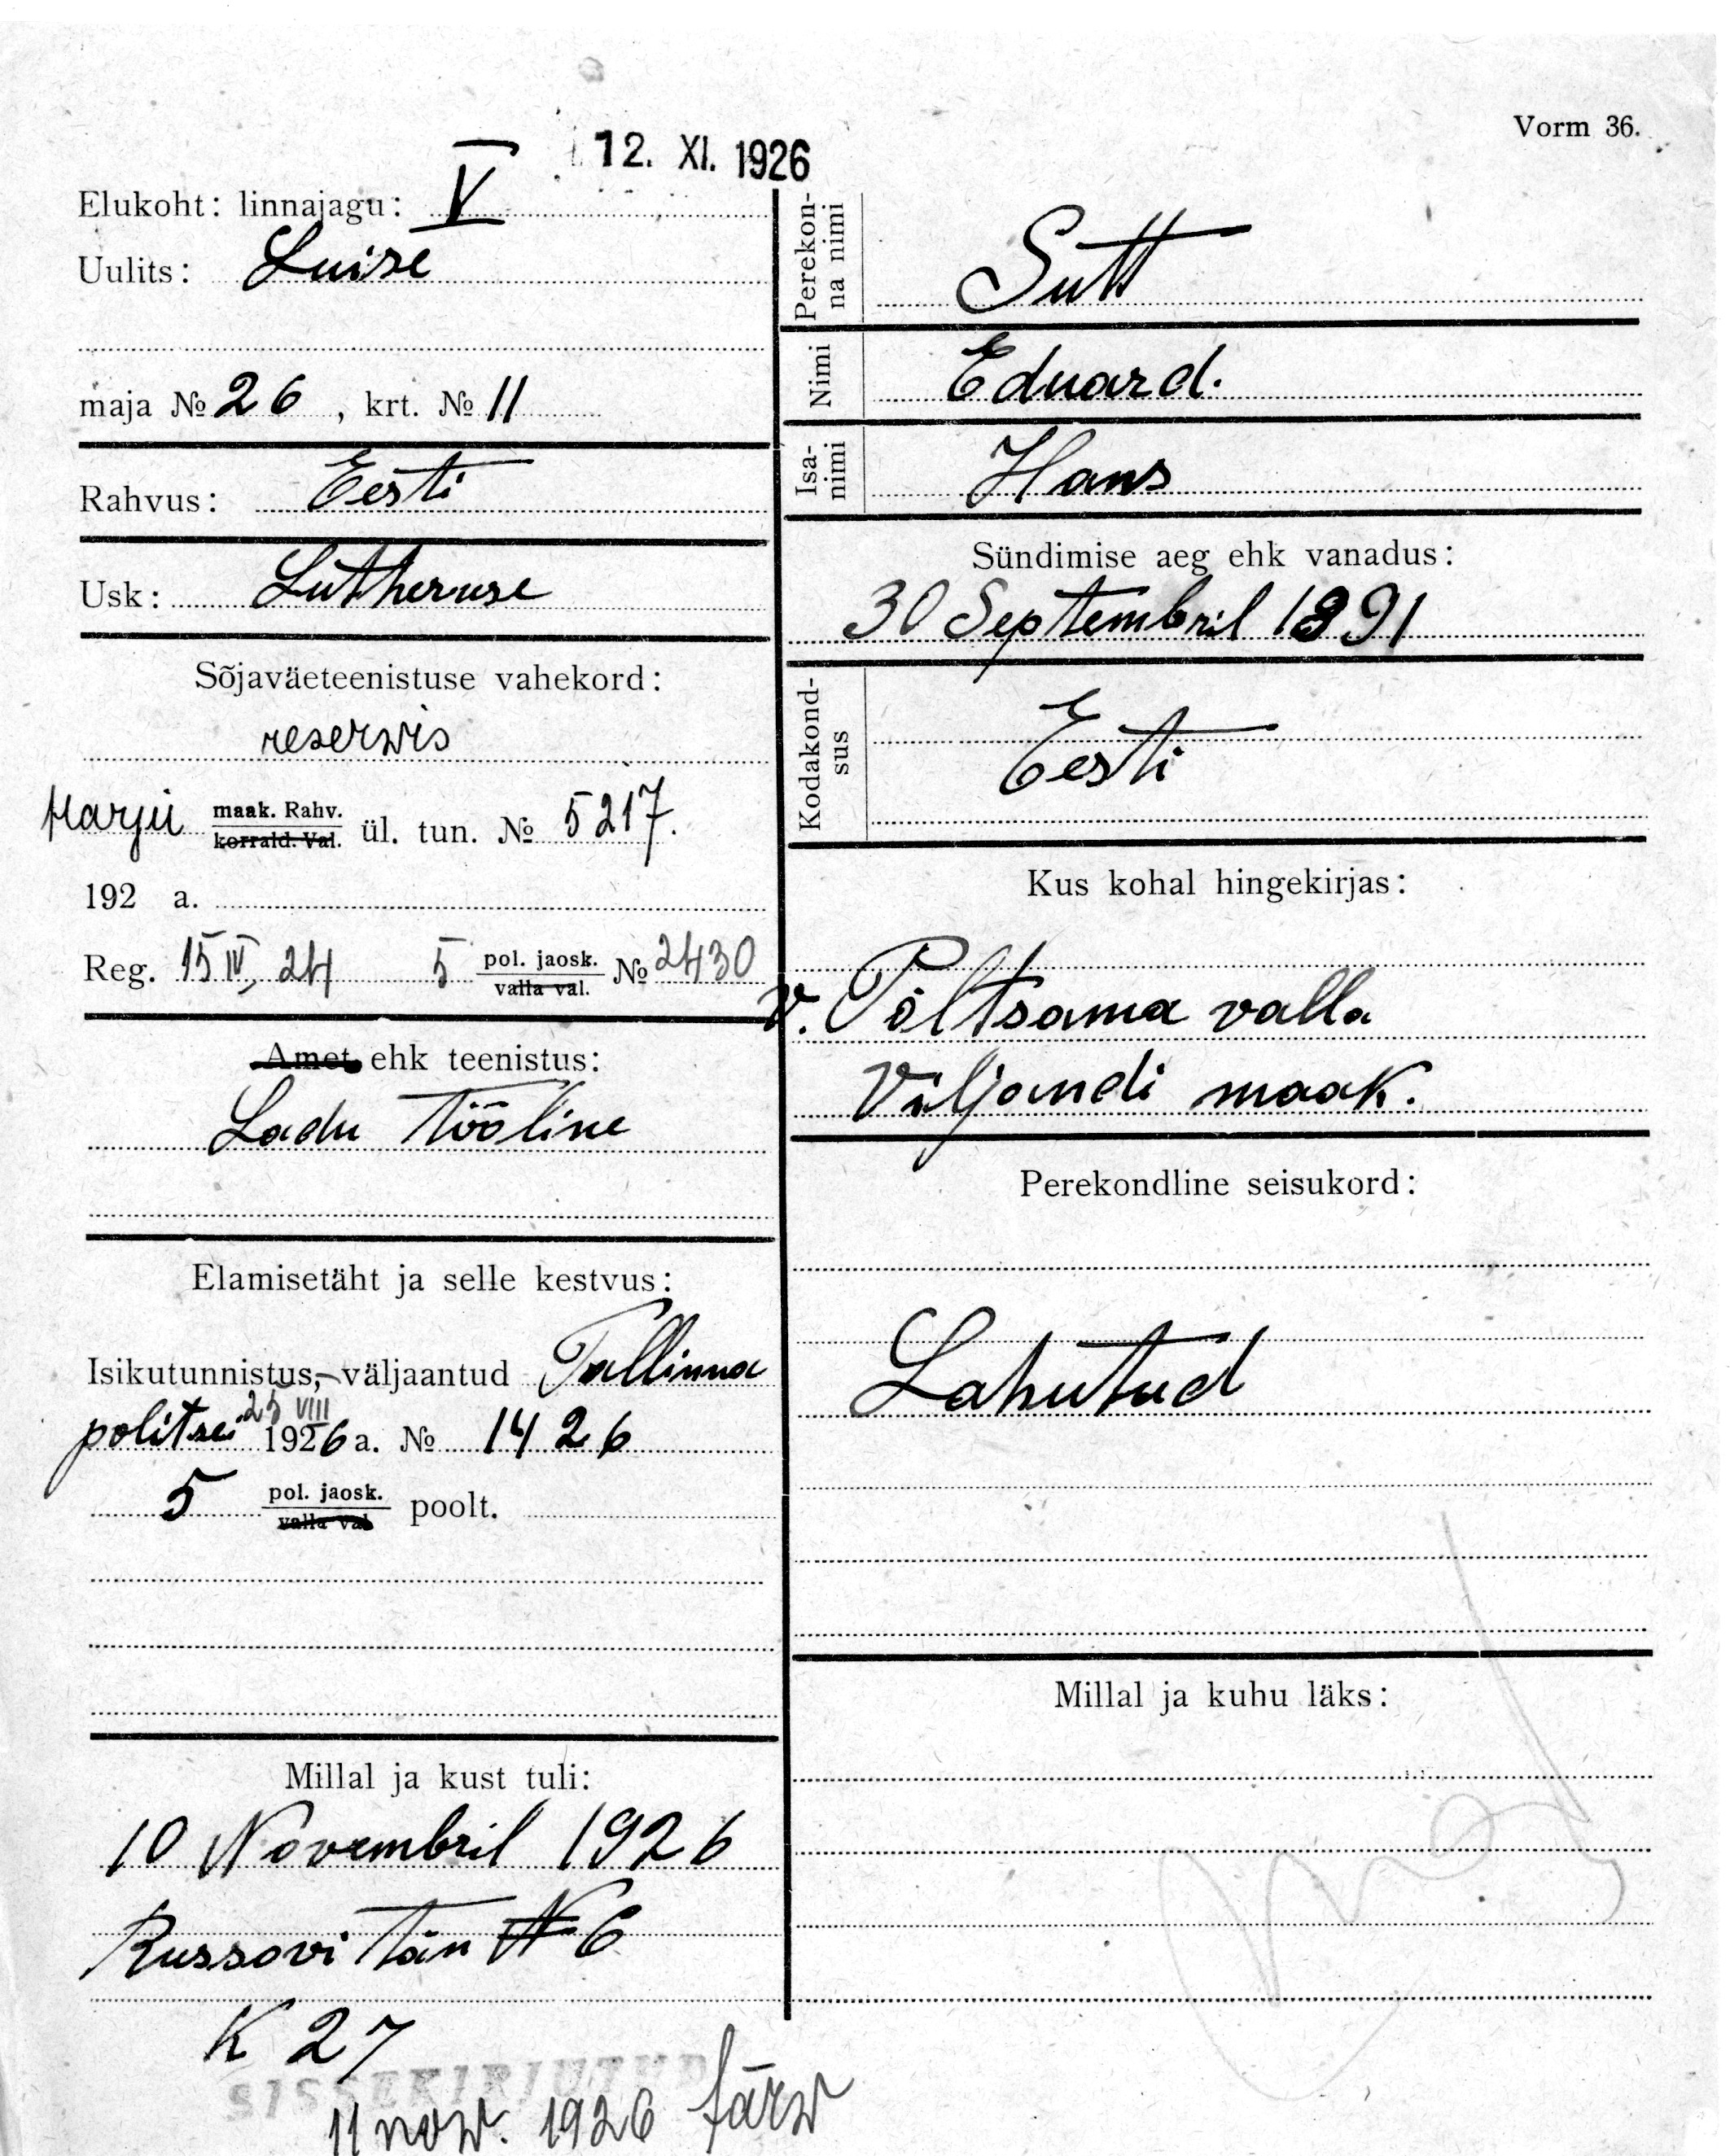 Vorm 36.
12. XI. 1926
Elukoht: linnajagu: V
Uulits: Luise
maja № 26, krt. № 11
Rahvus: Eesti
Usk: Lutheruse
Sõjaväeteenistuse vahekord:
reserwis
Harju maak. Rahv. korrald. Val. ül. tun. № 5217.
192 a.
Reg. 15 IV, 24 5 pol. jaosk. valla val. № 2430
Amet ehk teenistus:
Ladu tööline
Elamisetäht ja selle kestvus:
Isikutunnistus, väljaantud Tallinna
25 VIII
politsei 1926 a. № 1426
5 pol. jaosk. valla val. poolt.
Millal ja kust tuli:
10 Novembril 1926
Russovi tän № 6
K 27
SISSEKIRJUTUD
11 now. 1926
Perekonna nimi
Sutt
Nimi
Eduard.
Isanimi
Hans
Sündimise aeg ehk vanadus:
30 Septembril 1891
Kodakondsus
Eesti
Kus kohal hingekirjas:
V. Põltsama valla
Viljandi maak.
Perekondline seisukord:
Lahutud
Millal ja kuhu läks: